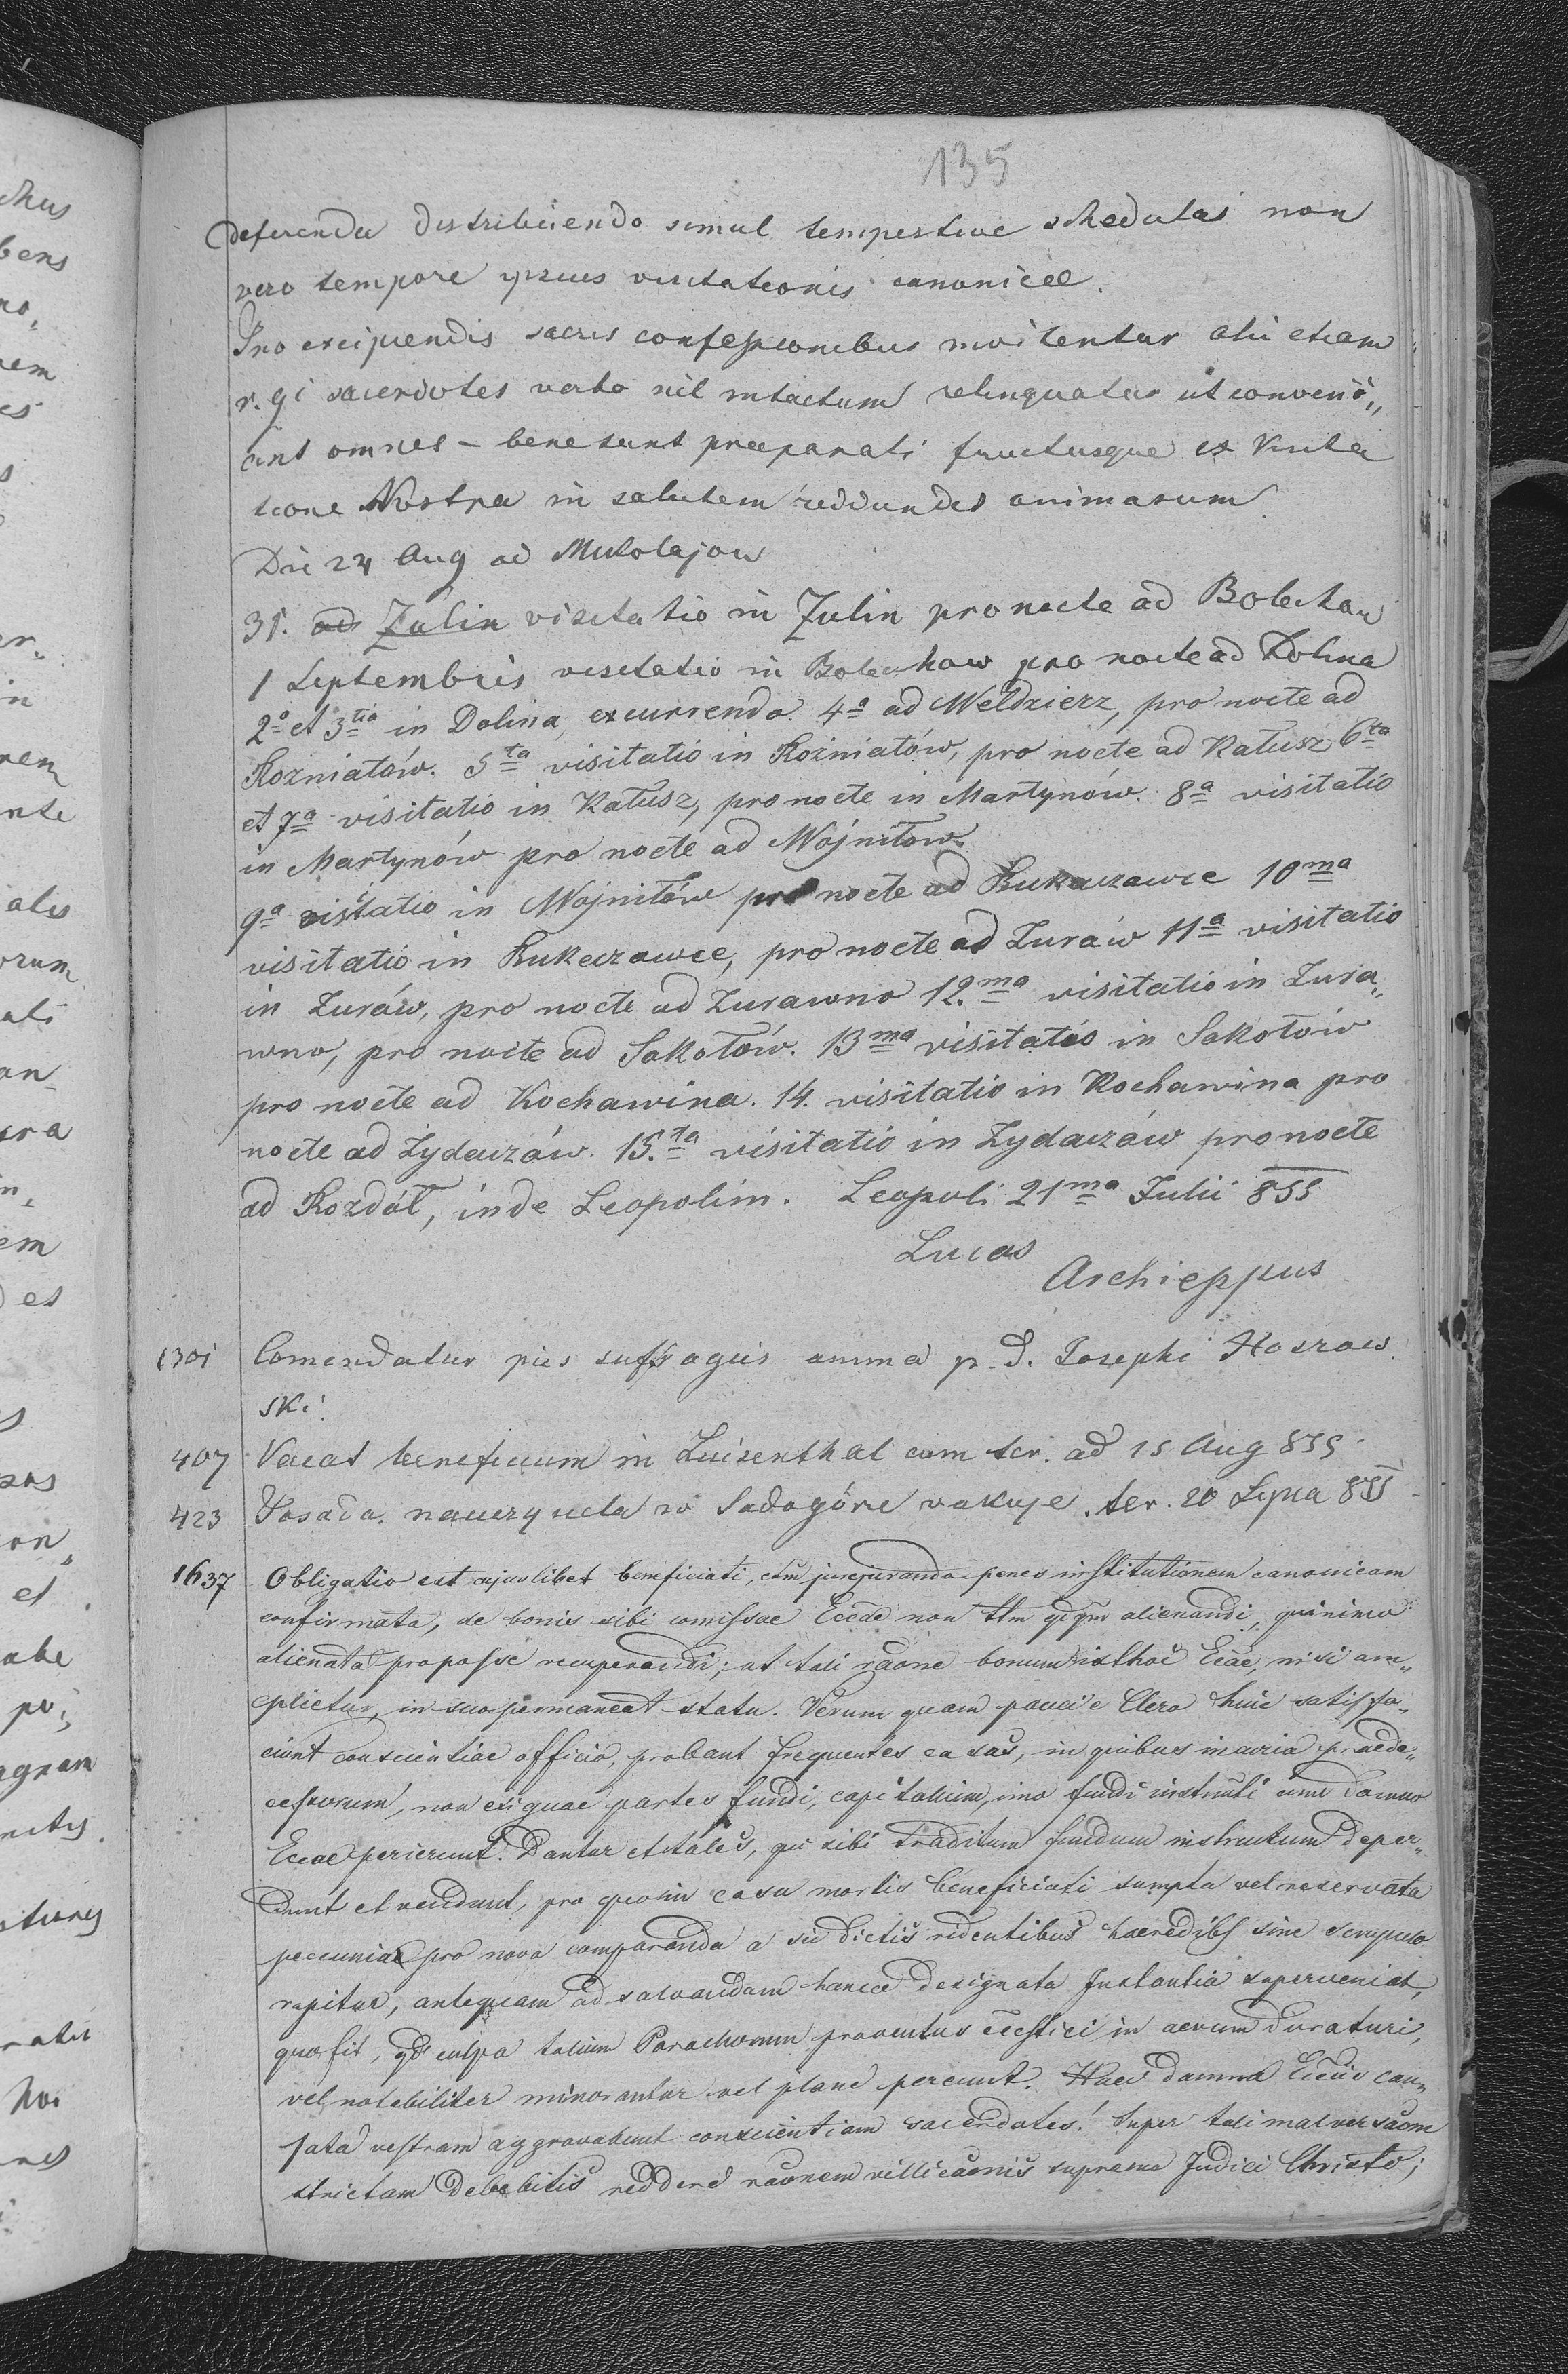 135
deferenda distribuendo simul tempestive schedulas non
vero tempore ipsius visitationis canonicae.
Pro excipiendis sacris confessionibus invitentur alii etiam
r. gi sacerdotes verbo nil intactum relinquatur ut conveni„
ant omnes – bene sunt praeparati fructusque ex Visita
tione Nostra in salutem reddundet animarum
Die 24 Aug ad Mikolajow
31. ad Zulin visitatio in Zulin pro nocte ad Bolechow
1 Septembris visitatio in Bolechow pro nocte ad Dolina
2º et 3tia in Dolina, excurrendo. 4a ad Weldzierz, pro nocte ad
Rozniatów. 5ta visitatio in Rożniatów, pro nocte ad Kałusz 6ta
et 7a visitatio in Kałusz, pro nocte in Martynów. 8a visitatio
in Martynów pro nocte ad Wojniłow.
9a visitatio in Wojniłów pro nocte ad Bukaczowce 10ma
visitatio in Bukaczowce, pro nocte ad Zurów 11a visitatio
in Zurów, pro nocte ad Zurawno 12.ma visitatio in Zura„
wno, pro nocte ad Sokołów. 13ma visitatio in Sokołów
pro nocte ad Kochawina. 14. visitatio in Kochawina pro
nocte ad Zydaczów. 15.ta visitatio in Zydaczów pro nocte
ad Rozdół, inde Leopolim. Leopoli 21ma Julii 855
Lucas
Archieppus
1301 Comendatur piis suffragiis anima p. d. Josephi Hoszow
ski.
407 Vacat beneficium in Luisenthal cum ter. ad 15 Aug 855
423 Posada nauczyciela w Sadogórze vakuje. ter. 20 Lipca 855
1637 Obligatio est cujuslibet beneficiati, etm jurejurando penes institutionem canonicam
confirmata, de bonis sibi comissae Eccae non ttm alienandi, quinimo
alienata pro posse recuperandi; ut tali raone bonum isthoc Ecae, nisi am„
plietur, in suo permaneat statu. Verum quam pauci e Clero huic satisfa„
ciunt conscientiae officio, probant frequentes casus, in quibus incuria praede„
cessorum, non exiguae partes fundi, capitalium, imo fundi instructi cum damno
Eccae perierunt. Dantur et tales, qui sibi traditum fundum instructum deper„
dunt et vendunt, pro quo in casu mortis beneficiati sumpta vel reservata
pecuniae pro nova comparanda a sic dictis ridentibus haeredibs sine scrupulo
rapitur, antequam ad salvandam hancce designata Instantia superveniat,
quo fit, qd culpa talium Parochorum proventus ecclstici in aevum duraturi,
vel notabiliter minorantur vel plane pereunt. Haec damna Eccis cau„
sata vestram aggravabunt conscientiam sacerdotes! Super tali malversaone
strictam debebitis reddere raonem villicaonis supremo Judici Christo;